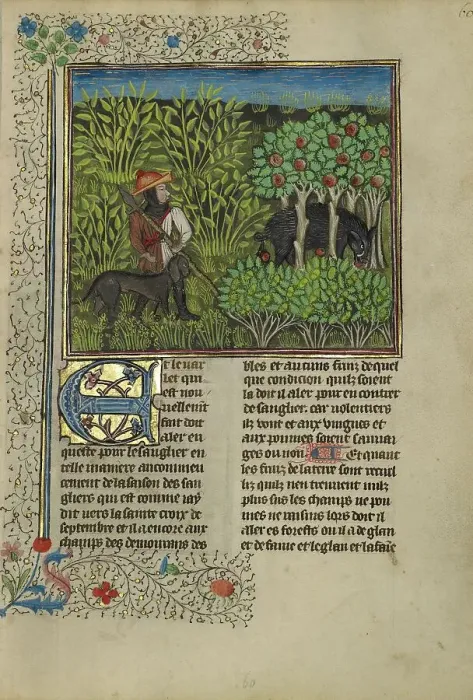 Et le var
let qui
est nou
uellemt
fait doit
aler en
queste pour le sanglier en
telle maniere ancommen
cement de la saison des san
gliers qui est comme iay
dit vers la sainte croix de
septembre et il a encore aux
champs des demourans des
bles et aucuns fruiz de quel
que condicion quilz soient
la doit il aler pour en contrer
de sanglier. car uolentiers
ilz vont et aux vingnes et
aux pommes soient sauuai
ges ou non Et quant
les fruiz de la terre sont recuil
liz quilz nen treuuent maiz
plus sus les champs ne pom
mes ne raisins lors doit il
aller es forestz ou il a de glan
et de faine et le glan et la faie